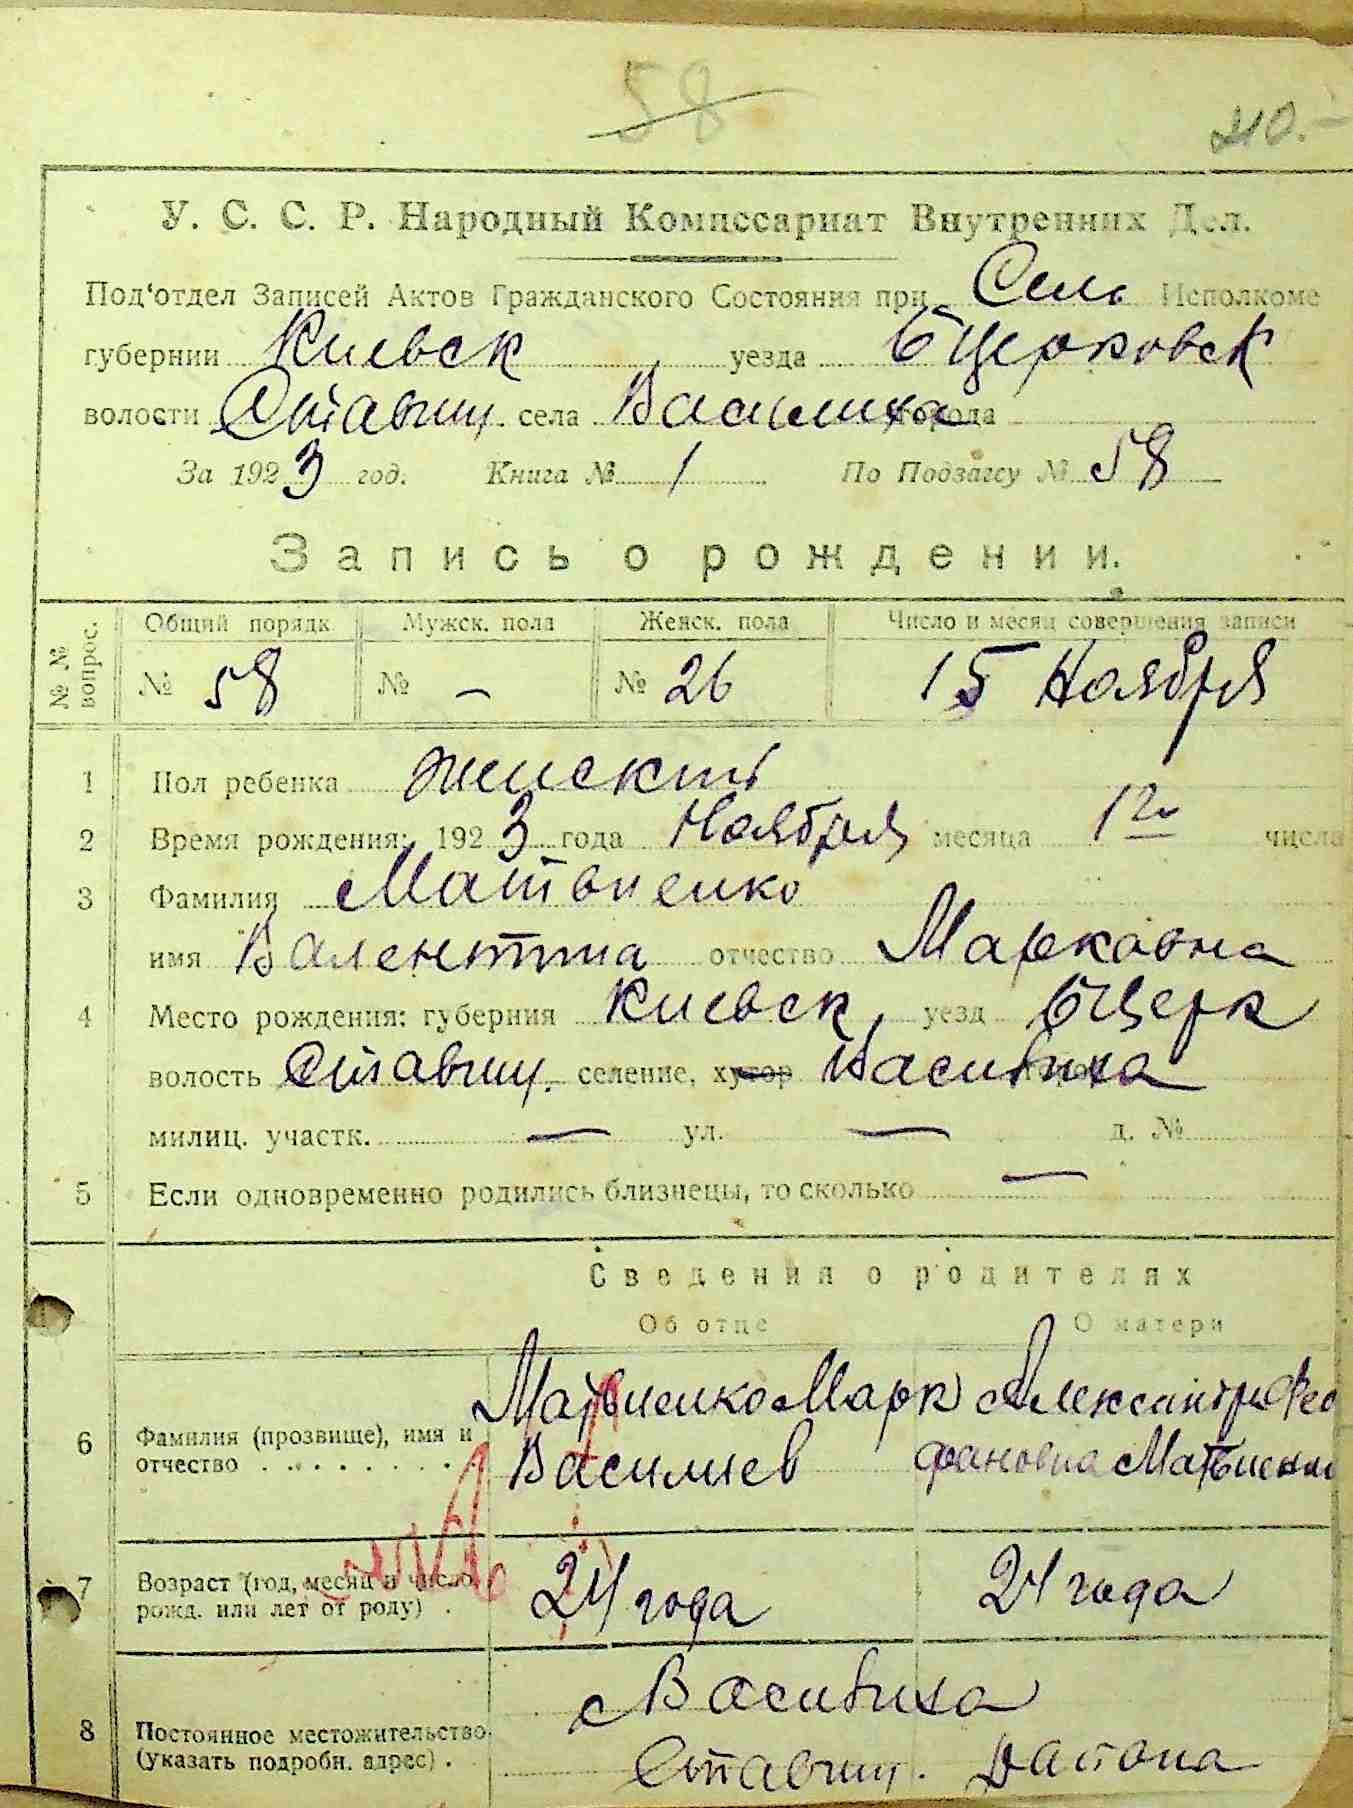 58
210.-
У. С. С. Р. Народный Комиссариат Внутренних Дел.
Под‘отдел Записей Актов Гражданского Состояния при Сель Исполкоме
губернии Киевск уезда БЦерковск
волости Ставищ. села Василиха города
За 1923 год. Книга № 1 По Подзагсу № 58
Запись о рождении.
№№ вопрос. Общий порядк Мужск. пола Женск. пола Число и месяц совершения записи
№ 58 № — № 26 15 Ноября
1 Пол ребенка женский
2 Время рождения: 1923 года Ноября месяца 1го числа
3 Фамилия Матвиенко
имя Валентина отчество Марковна
4 Место рождения: губерния Киевск уезд БЦерк
волость Ставищ. селение, хутор Василиха
милиц. участк. — ул. — д. №
5 Если одновременно родились близнецы, то сколько —
Сведения о родителях
Об отце О матери
6 Фамилия (прозвище), имя и отчество
Матвиенко Марк Александра Фео
Василиев фановна Матвиенко
7 Возраст (год, месяц и число рожд. или лет от роду) . 24 года 24 года
8 Постоянное местожительство (указать подробн. адрес) .
с Василиха
Ставищ. района